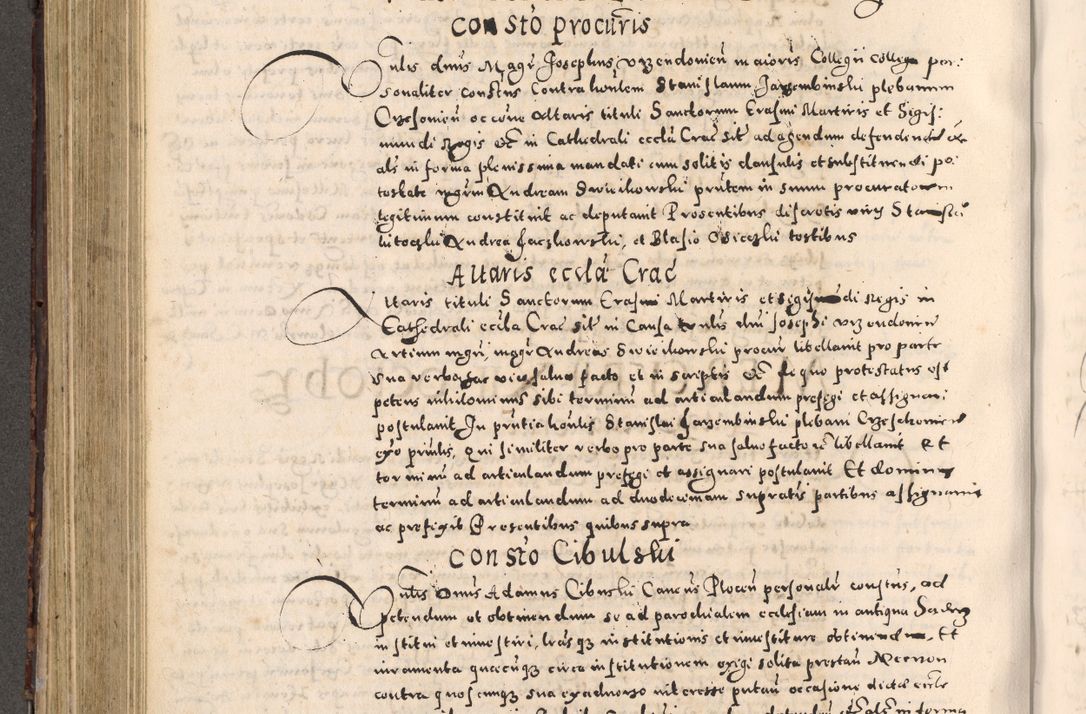 Consto procuris
nlis dnus Magr Josephus Vrzendoniens maioris Collegii collega per:
sonaliter constens Contra honlem Stanislaum Jarzembinski plebanum
occone Altaris tituli Sanctorum Erasmi Martiris et Sigis:
mundi Regis etc in Cathedrali eccla Crac sit ad agendum defendendum etc
als in forma plenissima mandati cum solitis clausulis et substituendi po:
testate mgrm Andream Swieikowski pntem in suum procuratorem
legitimum constituit ac deputauit Presentibus discretis viris Stanisl
Andrea Jaczkowski, et Blasio testibus
Altaris eccla Crac
ltaris tituli Sanctorum Erasmi Martiris et Sigismundi Regis in
Cathedrali eccla Crac sit in Causa dni Josephi Vrzendoniens
Artium mgri, mgr Andreas Swieikowski procur libellauit pro parte
sua verbo hac vice saluo facto et in scriptis etc de quo protestatus est
petens nihilominus sibi terminum ad articulandum prefigi et assignari
postulauit In pntia honlis Stanislai Jarzembinski plebani
exo principalis, qui similiter verbo pro parte sua saluo facto re libellauit Et
terminum ad articulandum prefigi et assignari postulauit Et dominus
terminum ad articulandum ad duodecimam supratis partibus assignauit
ac prefigit Presentibus quibus supra
Consto Cibulski
nlis Dnus Adamus Cibulski Cancus Plocen personalr constus, ad
petendum et obtinendum se ad parochialem ecclesiam in antiqua
institui et inuestiri, lrasq institutionis et inuestiture obtinendum, Et
iuramenta quecunq circa institutionem exigi solita prestan Necnon
contra quoscunq sua ex aduerso interesse putan occasione dicte eccle